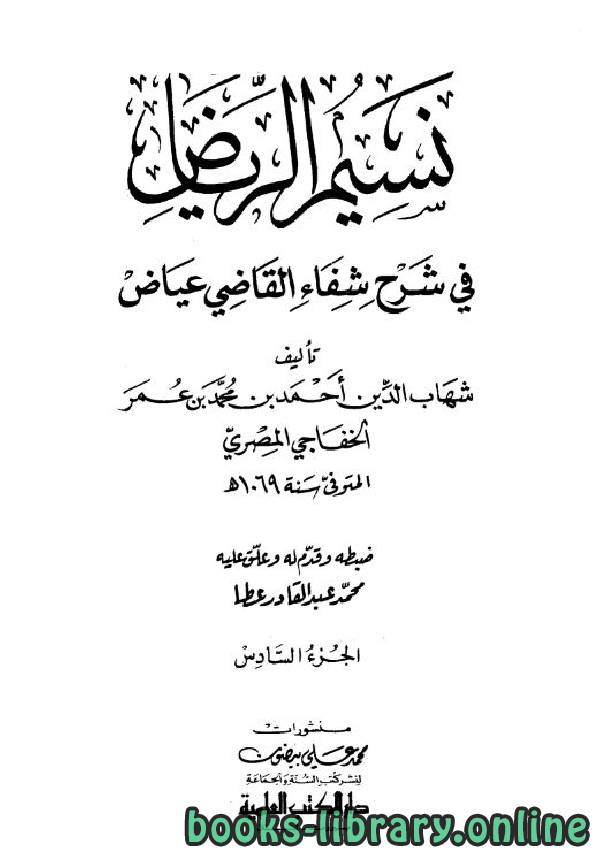 نَسِيمُ الرِّيَاضِ
في شَرْح شِفَاءِ القَاضِي عيَاضْ
تأليف
شهاب الدِّين أحْمَد بن محمَّد بن عُمَر
الخفاجي المصريّ
المتوفى سَنة ١٠٦٩هـ
ضبطه وقدّم له وعلّق عليه
محمّد عبد القادر عطا
الجزءُ السَّادِسْ
منشورات
محمد علي بيضون
لنشر كتب السُّنة والجماعة
دار الكتب العلمية
books-library.online